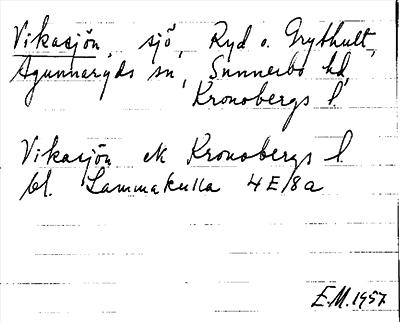 Vikasjön, sjö, Ryd o. Grythult,
Agunnaryds sn, Sunnerbo hd,
Kronobergs l.
Vikasjön ek Kronobergs l.
bl. Lammakulla 4E/8a
E.M. 1957